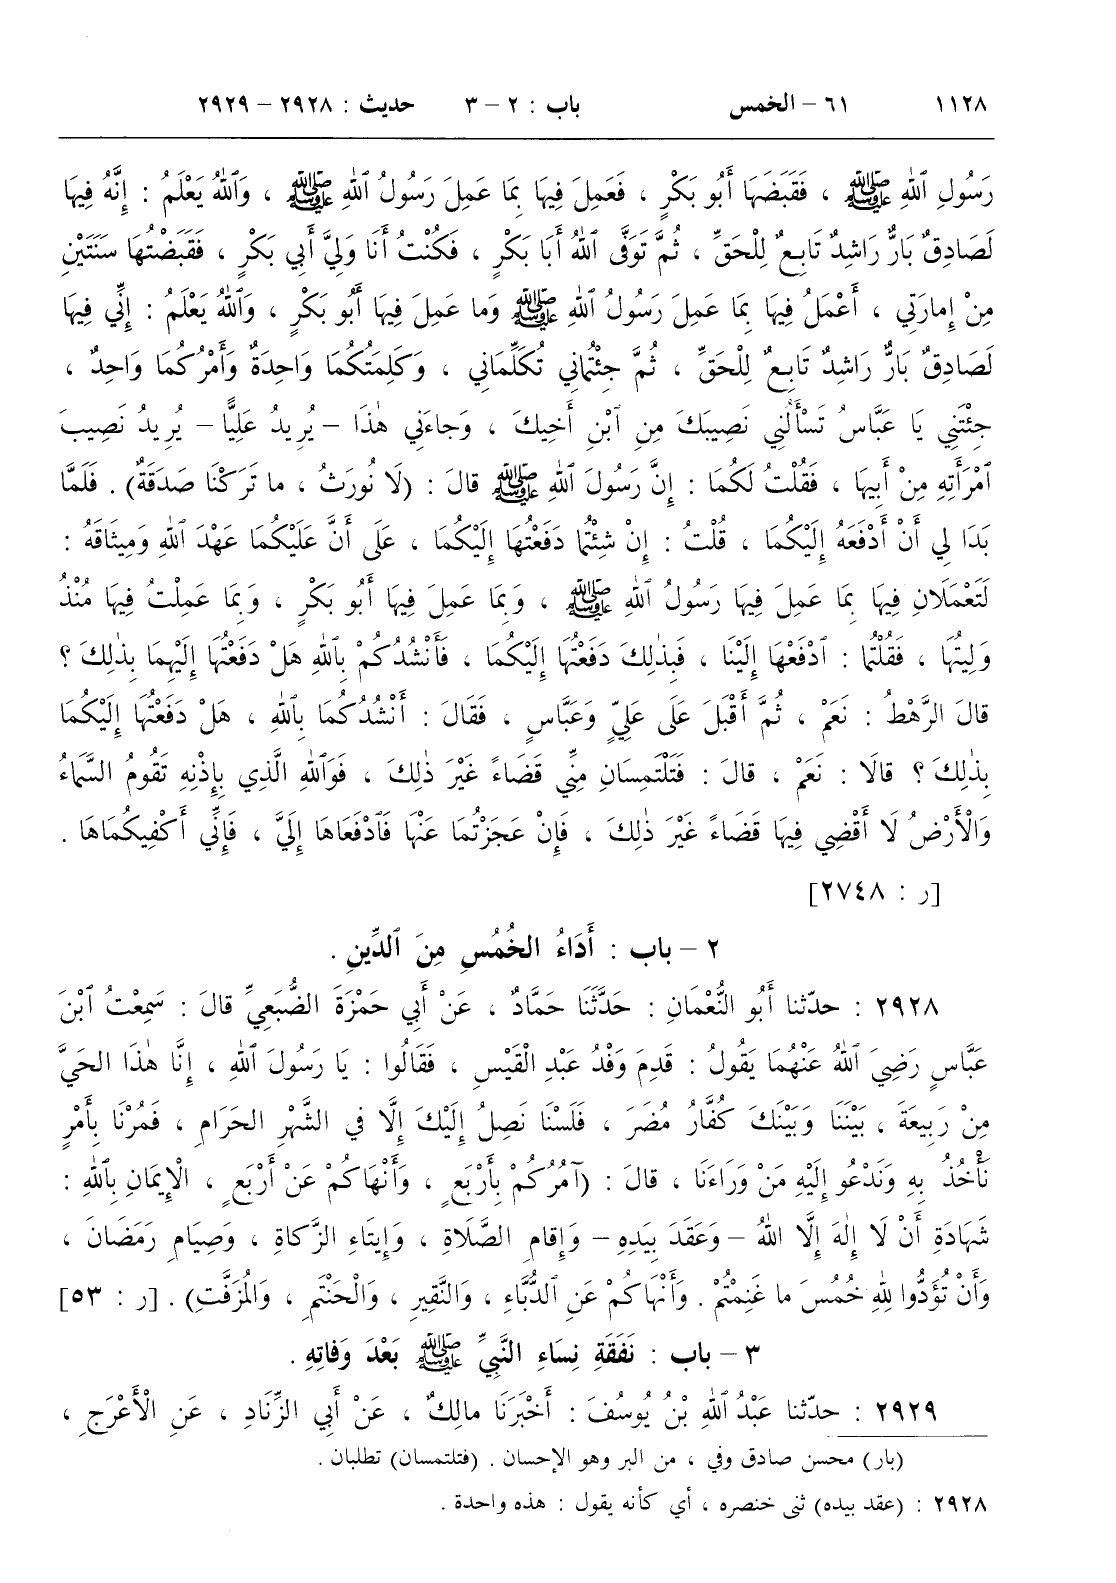 ١١٢٨ ٦١ – الخمس باب : ٢ – ٣ حديث : ٢٩٢٨ – ٢٩٢٩
رَسُولِ ٱللهِ ﷺ ، فَقَبَضَهَا أَبُو بَكْرٍ ، فَعَمِلَ فِيهَا بِمَا عَمِلَ رَسُولُ ٱللهِ ﷺ ، وَٱللهُ يَعْلَمُ : إِنَّهُ فِيهَا
لَصَادِقٌ بَارٌّ رَاشِدٌ تَابِعٌ لِلْحَقِّ ، ثُمَّ تَوَفَّى ٱللهُ أَبَا بَكْرٍ ، فَكُنْتُ أَنَا وَلِيَّ أَبِي بَكْرٍ ، فَقَبَضْتُهَا سَنَتَيْنِ
مِنْ إِمارَتِي ، أَعْمَلُ فِيهَا بِمَا عَمِلَ رَسُولُ ٱللهِ ﷺ وَما عَمِلَ فِيهَا أَبُو بَكْرٍ ، وَٱللهُ يَعْلَمُ : إِنِّي فِيهَا
لَصَادِقٌ بَارٌّ رَاشِدٌ تَابِعٌ لِلْحَقِّ ، ثُمَّ جِئْتُمَانِي تُكَلِّمَانِي ، وَكَلِمَتُكُمَا وَاحِدَةٌ وَأَمْرُكُمَا وَاحِدٌ ،
جِئْتَنِي يَا عَبَّاسُ تَسْأَلُنِي نَصِيبَكَ مِنِ ٱبْنِ أَخِيكَ ، وَجاءَنِي هٰذَا – يُرِيدُ عَلِيًّا – يُرِيدُ نَصِيبَ
ٱمْرَأَتِهِ مِنْ أَبِيهَا ، فَقُلْتُ لَكُمَا : إِنَّ رَسُولَ ٱللهِ ﷺ قالَ : (لَا نُورَثُ ، ما تَرَكْنَا صَدَقَةٌ) . فَلَمَّا
بَدَا لِي أَنْ أَدْفَعَهُ إِلَيْكُمَا ، قُلْتُ : إِنْ شِئْتُمَا دَفَعْتُهَا إِلَيْكُمَا ، عَلَى أَنَّ عَلَيْكُمَا عَهْدَ ٱللهِ وَمِيثَاقَهُ :
لَتَعْمَلَانِ فِيهَا بِمَا عَمِلَ فِيهَا رَسُولُ ٱللهِ ﷺ ، وَبِمَا عَمِلَ فِيهَا أَبُو بَكْرٍ ، وَبِمَا عَمِلْتُ فِيهَا مُنْذُ
وَلِيتُهَا ، فَقُلْتُمَا : ٱدْفَعْهَا إِلَيْنَا ، فَبِذٰلِكَ دَفَعْتُهَا إِلَيْكُمَا ، فَأَنْشُدُكُمْ بِٱللهِ هَلْ دَفَعْتُهَا إِلَيْهِمَا بِذٰلِكَ ؟
قالَ الرَّهْطُ : نَعَمْ ، ثُمَّ أَقْبَلَ عَلَى عَلِيٍّ وَعَبَّاسٍ ، فَقَالَ : أَنْشُدُكُمَا بِٱللهِ ، هَلْ دَفَعْتُهَا إِلَيْكُمَا
بِذٰلِكَ ؟ قالَا : نَعَمْ ، قالَ : فَتَلْتَمِسَانِ مِنِّي قَضَاءً غَيْرَ ذٰلِكَ ، فَوَٱللهِ الَّذِي بِإِذْنِهِ تَقُومُ السَّمَاءُ
وَالْأَرْضُ لَا أَقْضِي فِيهَا قَضَاءً غَيْرَ ذٰلِكَ ، فَإِنْ عَجَزْتُمَا عَنْهَا فَٱدْفَعَاهَا إِلَيَّ ، فَإِنِّي أَكْفِيكُمَاهَا .
[ر : ٢٧٤٨]
٢ – باب : أَدَاءُ الخُمُسِ مِنَ ٱلدِّينِ .
٢٩٢٨ : حدّثنا أَبُو النُّعْمَانِ : حَدَّثَنَا حَمَّادٌ ، عَنْ أَبِي حَمْزَةَ الضُّبَعِيِّ قالَ : سَمِعْتُ ٱبْنَ
عَبَّاسٍ رَضِيَ ٱللهُ عَنْهُمَا يَقُولُ : قَدِمَ وَفْدُ عَبْدِ الْقَيْسِ ، فَقَالُوا : يَا رَسُولَ ٱللهِ ، إِنَّا هٰذَا الحَيَّ
مِنْ رَبِيعَةَ ، بَيْنَنَا وَبَيْنَكَ كُفَّارُ مُضَرَ ، فَلَسْنَا نَصِلُ إِلَيْكَ إِلَّا في الشَّهْرِ الحَرَامِ ، فَمُرْنَا بِأَمْرٍ
نَأْخُذُ بِهِ وَنَدْعُو إِلَيْهِ مَنْ وَرَاءَنَا ، قالَ : (آمُرُكُمْ بِأَرْبَعٍ ، وَأَنْهَاكُمْ عَنْ أَرْبَعٍ ، الْإِيمَانِ بِٱللهِ :
شَهَادَةِ أَنْ لَا إِلٰهَ إِلَّا ٱللهُ – وَعَقَدَ بِيَدِهِ – وَإِقامِ الصَّلَاةِ ، وَإِيتَاءِ الزَّكاةِ ، وَصِيَامِ رَمَضَانَ ،
وَأَنْ تُؤَدُّوا لِلهِ خُمُسَ ما غَنِمْتُمْ . وَأَنْهَاكُمْ عَنِ ٱلدُّبَّاءِ ، وَالنَّقِيرِ ، وَالْحَنْتَمِ ، وَالْمُزَفَّتِ) . [ر : ٥٣]
٣ – باب : نَفَقَةِ نِسَاءِ النَّبِيِّ ﷺ بَعْدَ وَفاتِهِ .
٢٩٢٩ : حدّثنا عَبْدُ ٱللهِ بْنُ يُوسُفَ : أَخْبَرَنَا مالِكٌ ، عَنْ أَبِي الزِّنَادِ ، عَنِ الْأَعْرَجِ ،
(بار) محسن صادق وفي ، من البر وهو الإحسان . (فتلتمسان) تطلبان .
٢٩٢٨ : (عقد بيده) ثنى خنصره ، أي كأنه يقول : هذه واحدة .